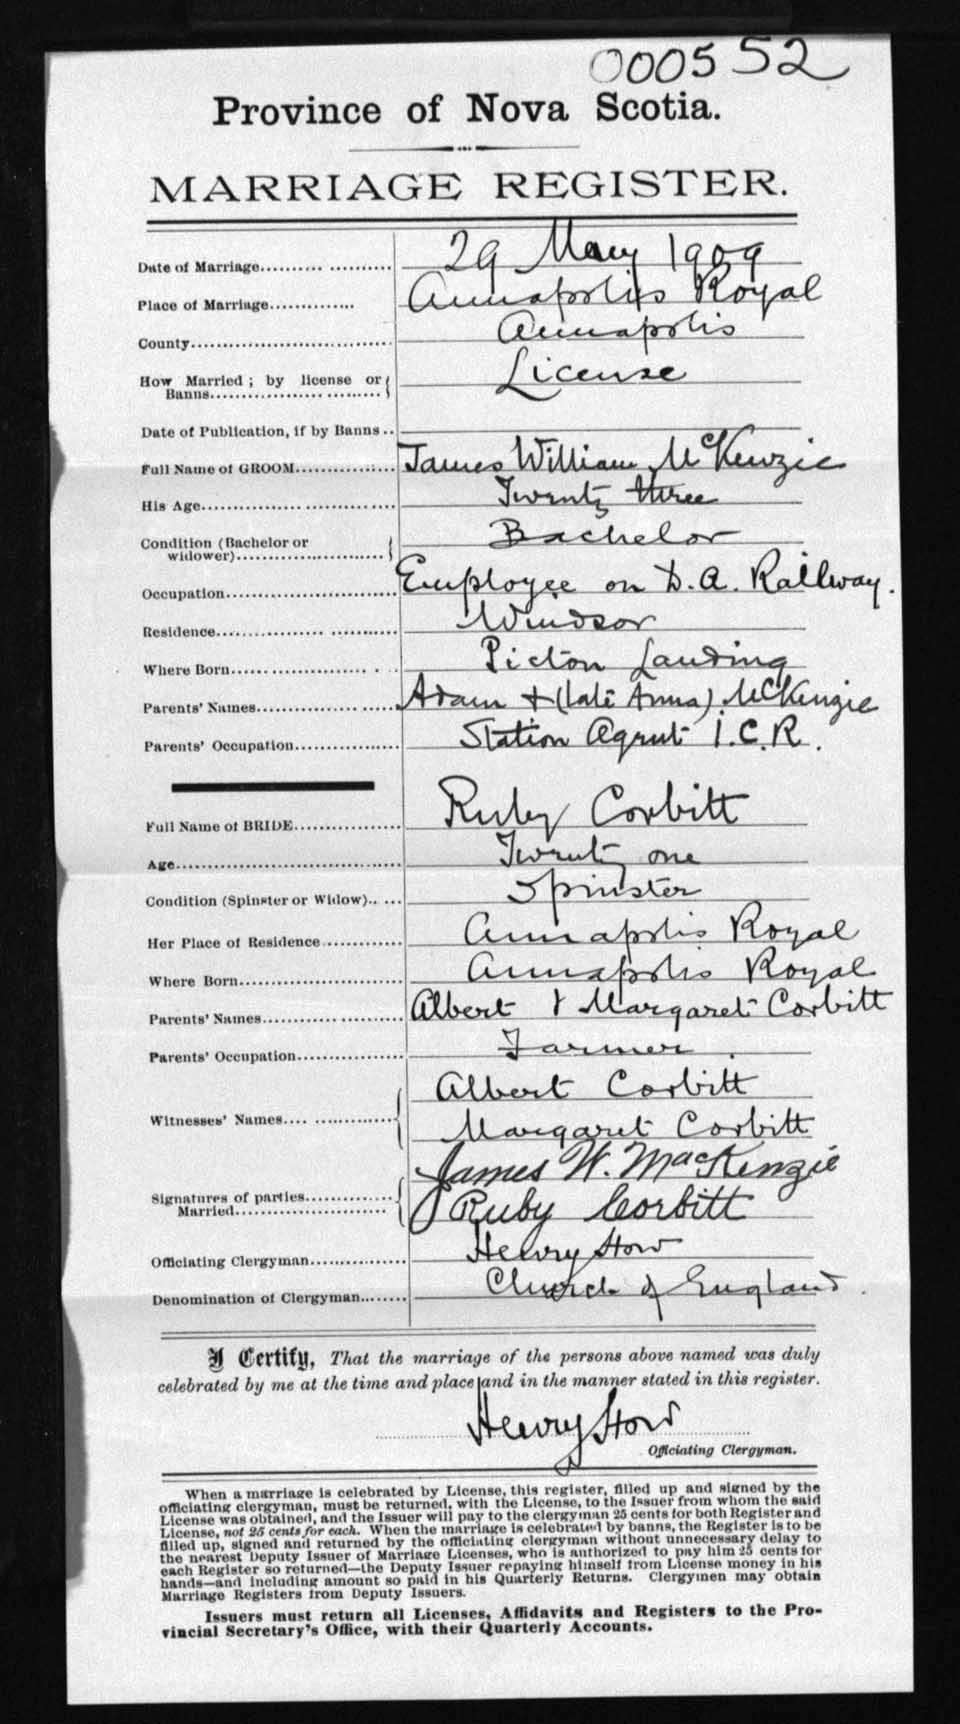 000552
Province of Nova Scotia.
MARRIAGE REGISTER.
Date of Marriage.......... 29 May 1909
Place of Marriage.......... Annapolis Royal
County.......... Annapolis
How Married; by license or Banns.......... License
Date of Publication, if by Banns..
Full Name of GROOM.......... James William McKenzie
His Age.......... Twenty three
Condition (Bachelor or widower).......... Bachelor
Occupation.......... Employee on D.A. Railway.
Residence.......... Windsor
Where Born.......... Pictou Landing
Parents' Names.......... Adam & (late Anna) McKenzie
Parents' Occupation.......... Station Agent I.C.R.
Full Name of BRIDE.......... Ruby Corbitt
Age.......... Twenty one
Condition (Spinster or Widow)..... Spinster
Her Place of Residence.......... Annapolis Royal
Where Born.......... Annapolis Royal
Parents' Names.......... Albert & Margaret Corbitt
Parents' Occupation.......... Farmer.
Witnesses' Names.......... Albert Corbitt
Margaret Corbitt
Signatures of parties Married.......... James W. MacKenzie
Ruby Corbitt
Officiating Clergyman.......... Henry How
Denomination of Clergyman.......... Church of England.
I Certify, That the marriage of the persons above named was duly
celebrated by me at the time and place and in the manner stated in this register.
Henry How
Officiating Clergyman.
When a marriage is celebrated by License, this register, filled up and signed by the
officiating clergyman, must be returned, with the License, to the Issuer from whom the said
License was obtained, and the Issuer will pay to the clergyman 25 cents for both Register and
License, not 25 cents for each. When the marriage is celebrated by banns, the Register is to be
filled up, signed and returned by the officiating clergyman without unnecessary delay to
the nearest Deputy Issuer of Marriage Licenses, who is authorized to pay him 25 cents for
each Register so returned—the Deputy Issuer repaying himself from License money in his
hands—and including amount so paid in his Quarterly Returns. Clergymen may obtain
Marriage Registers from Deputy Issuers.
Issuers must return all Licenses, Affidavits and Registers to the Pro-
vincial Secretary's Office, with their Quarterly Accounts.